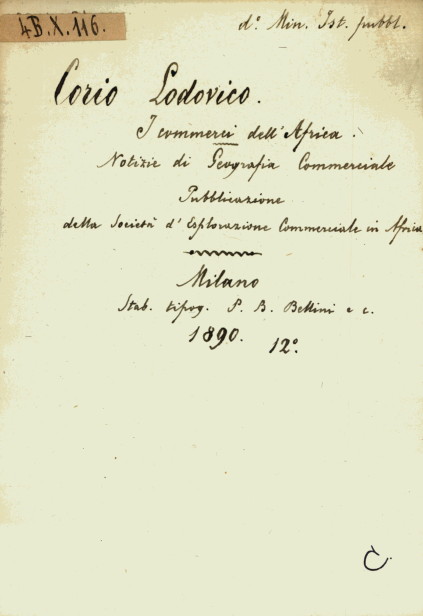 4B.X.116.
d.° Min. Ist. pubbl.
Corio Lodovico.
I commerci dell'Africa.
Notizie di Geografia Commerciale
Pubblicazione
della Società d'Esplorazione Commerciale in Africa
Milano
Stab. tipog. P. B. Bellini e c.
1890. 12°.
C